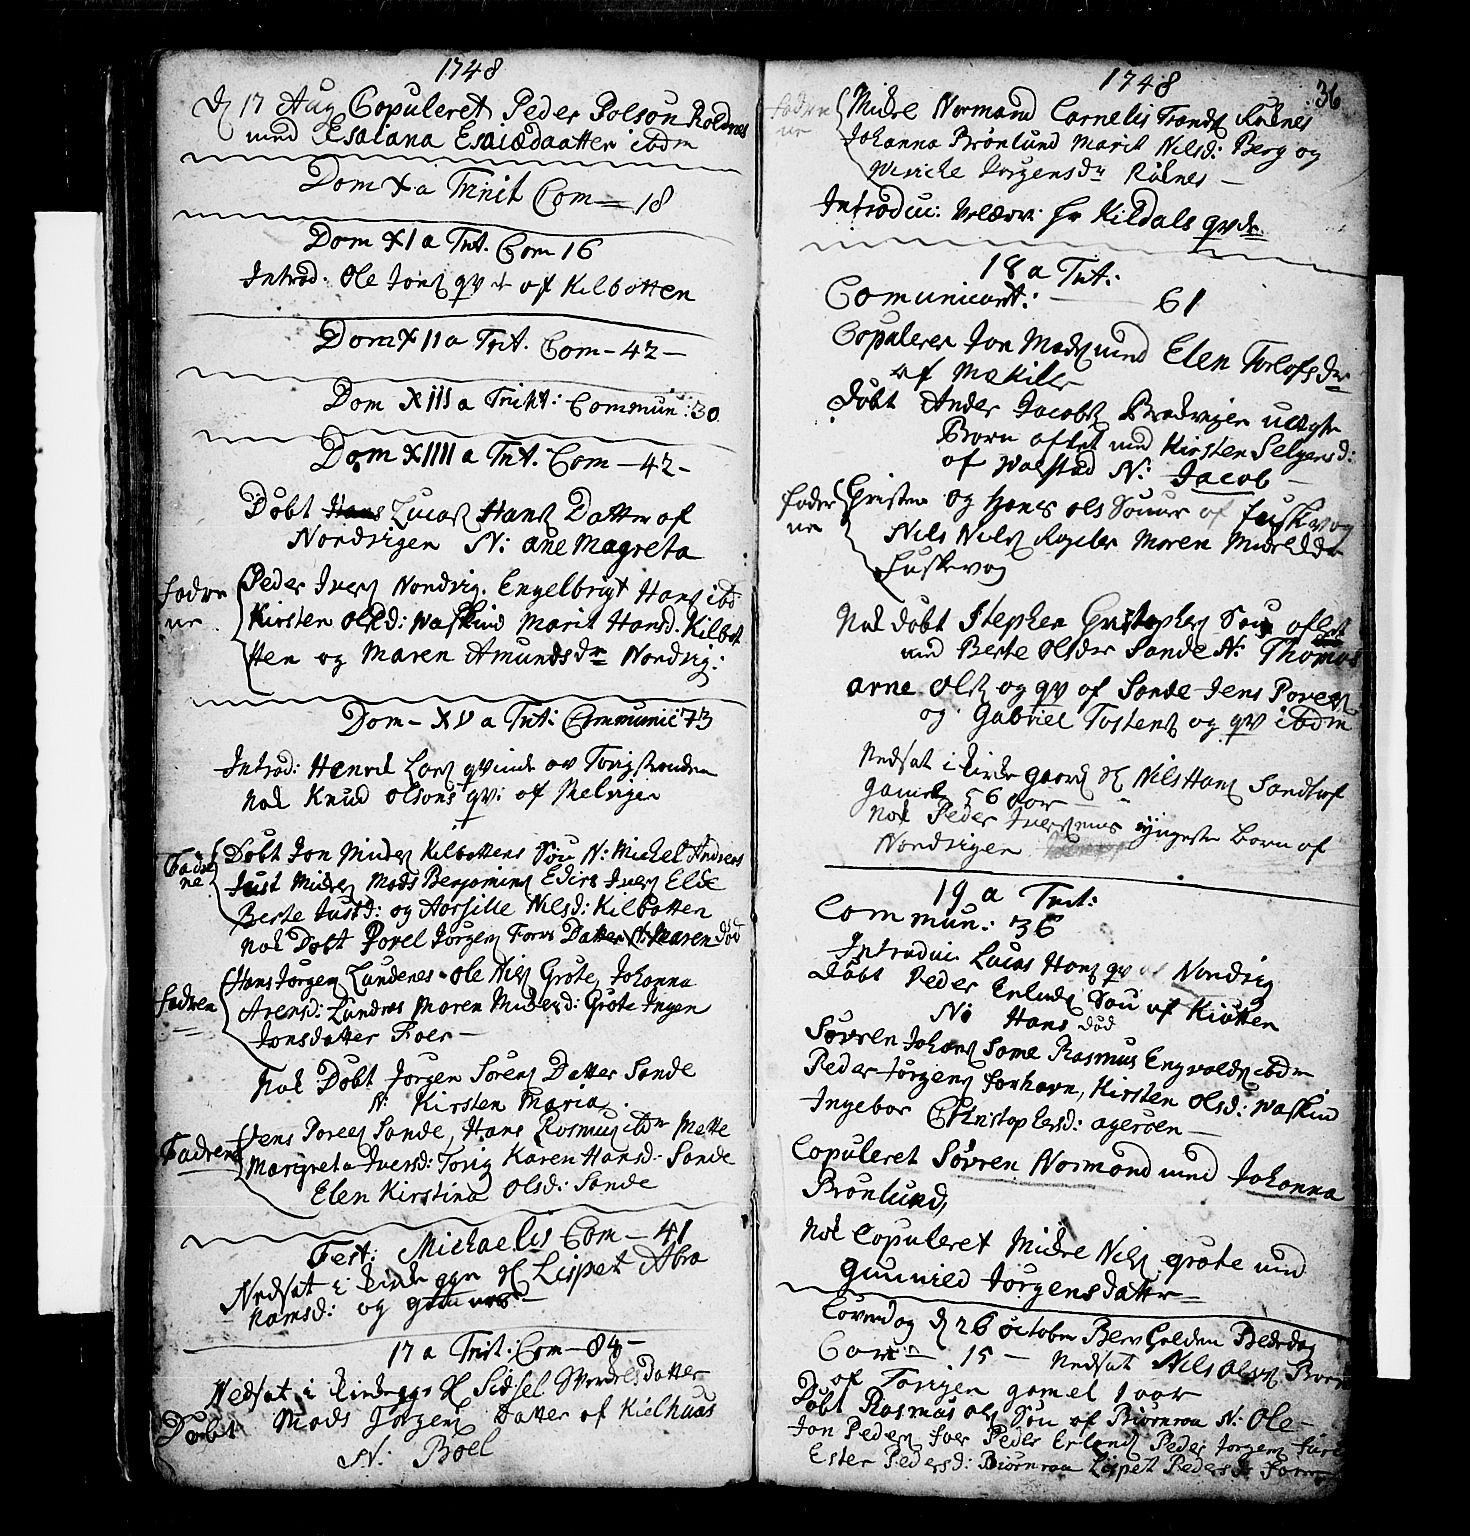 1748
D 17 Aug Copuleret Peder Polson Roldnes
med Esaiana Esaiædaatter ibdm
Dom X a Trinit Com = 18
Dom XI a Tnt. Com 16
Introd: Ole Jons qv af Kilbotten
Dom XII a Tnt. Com - 42 -
Dom XIII a Trinit: Commun: 30
Dom XIIII a Tnt. Com - 42 -
Döbt Hans Lucas Hans Datter af
Nordvigen N: ane Magreta
fadre Peder Ivers Nordvig. Engelbrigt Hans ibd
ne Kirsten Olsd: Waskind Marit Hansd. Kilbot
tten og Maren Amundsdr Nordvig:
Dom - XV a Tnt: Communic 73
Introd: Henrik Lars qvinde av Torigstranden
nok Knud Olsons qv: af Melvigen
Fad Döbt Jon Mickels Kilbottens Sön N: Michel Andreas
ne Just Mickels Mads Benjamins Edirs Ivers Elde
Berte Justd: og Aorsille Nilsd: Kilbotten
nok Döbt Povel Jörgens Foers Datter N: Maren död
Hans Jörgens Lundenes Ole Nils Gröte Johanna
fadren Arensd: Lundnes Maren Mickelsd: Gröte Ingen
Jonsdatter Foer -
Nok Döbt Jörgen Sörens Datter Sande
N: Kirsten Maria.
Fadrene Jens Povels Sande, Hans Rasmus ibdm Mette
Margreta Iversd: Torig Karen Hansd: Sande
Elen Kirstina Olsd: Sande
Fest: Michaelis Com - 41
Nedsat i kirke ggn Lispet Abra
hamsd: og
17 a Trit: Com - 84 -
Nedsat i kirkegg Sidsel Datter
Döbt Mads Jörgens Datter af Kielhuus
N. Boel
1748
36
fadre Mickel Normand Cornelis Trands Rölnes
ne Johanna Brönlund Marit Nilsd: Berg og
Jörgensdr Rölnes -
Introduc: Velærv: hr Kildals qvde
18 a Tnt:
Comunicant: 61
Copuleret Jon Mads med Elen Torlofsdr
af Mækiler
Döbt Ander Jacobs Bredvigen uægte
Barn aflet med Kirsten Selgensd:
af Walstad N: Jacob -
fadre Christen og Hans ols Sönner af fuskevog
ne Nils Nils Rogeler Maren Mickelsdr
Fuskevog
Nok döbt Stephen Christophers Sön aflet
med Berte Olsder Sande N: Thomas
arne Ols og qv af Sande Jens Povels
og Gabriel Tostens og qv ibdm
Nedsat i kirke gaard Nils Hans Sandtorf
gamel 56 aar
Nok Peder Iversens yngeste Barn af
Nordvigen
19 a Tnt:
Commun: 36
Introduc Lucas Hans qv af Nordvig
Döbt Peder Erlends Sön af Kiötten
N: Hans död
Sövren Johans Same Rasmus Engvolds ibdm
Peder Jörgens forhavn, Kirsten Olsd: Waskind
Ingebor Christophersd: ageröen -
Copuleret Sövren Normand med Johanna
Brönlund,
Nok Copuleret Mickel Nils gröte med
gunnild Jörgensdatter =
Löverdag D 26 October Blev holden Bededag
Com 15 - Nedsat Nils Ols Barn
af Torigen gamel 1 aar
Döbt Rasmus ols Sön af Biörnraa N: Ole -
Jon Peders foer Peder Erlends Peder Jorgens
Ester Pedersd: Biörnraa Lispet Pedersdr